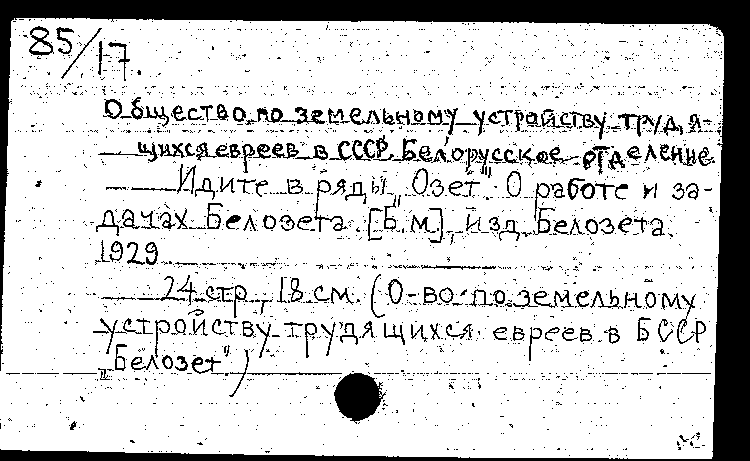 85/17.
Общество по земельному устройству трудя-
щихся евреев в СССР. Белорусское отделение
Идите в ряды "Озет". О работе и за-
дачах Белозета. [Б.м], изд. Белозета.
1929
24 стр., 18 см. (О-во по земельному
устройству трудящихся евреев в БССР
"Белозет".)